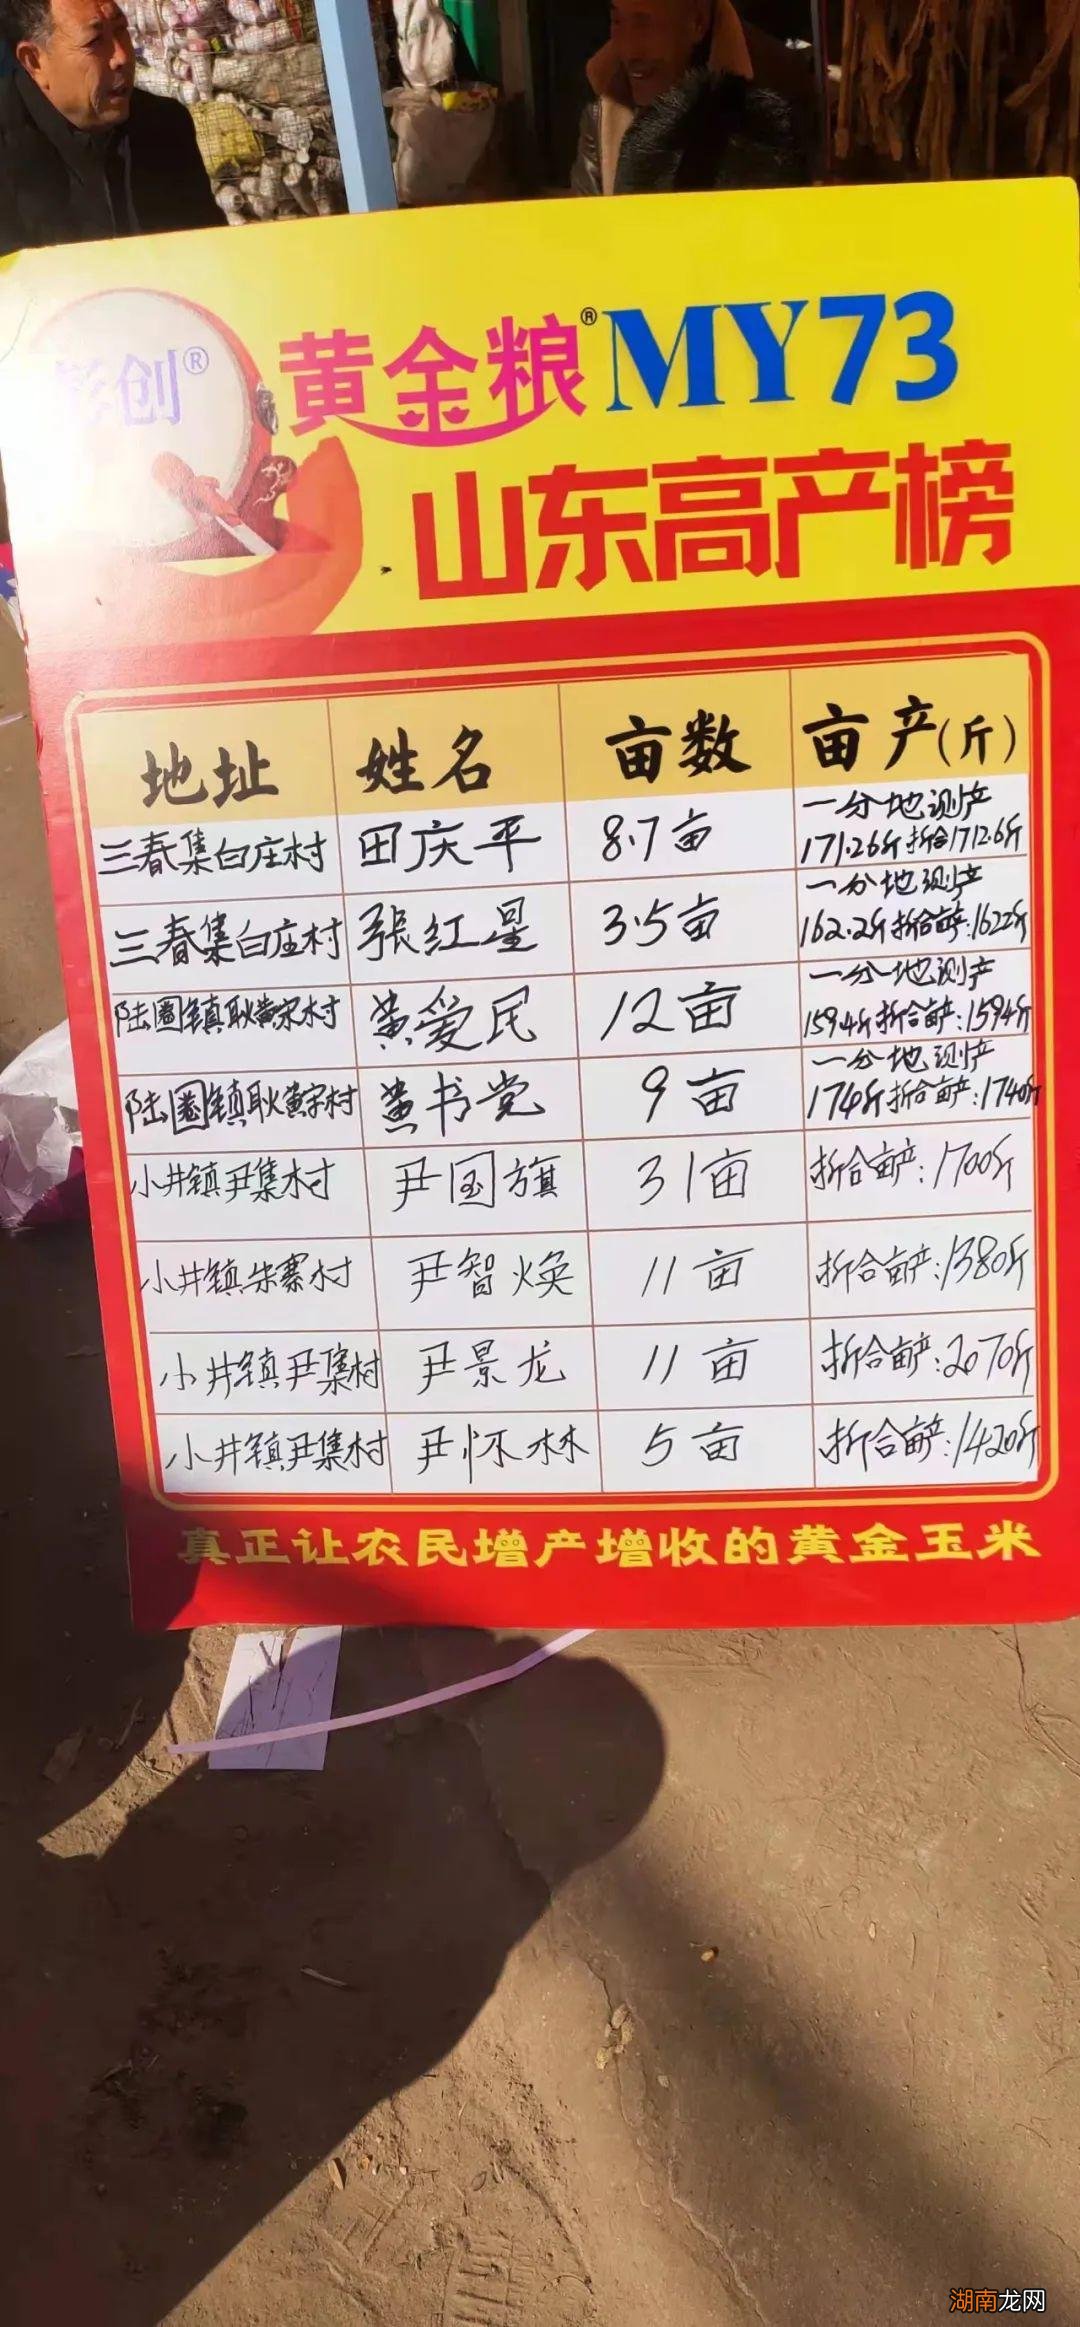 创®
黄金粮®MY73
山东高产榜
地址 姓名 亩数 亩产(斤)
三春集白庄村 田庆平 8.7亩 一分地测产
171.26斤折合1712.6斤
三春集白庄村 張红星 3.5亩 一分地测产
162.2斤折合亩产:1622斤
陆圈镇耿黄宋村 黄爱民 12亩 一分地测产
159.4斤折合亩产:1594斤
陆圈镇耿黄宋村 黄书党 9亩 一分地测产
174斤折合亩产:1740斤
小井镇尹集村 尹国旗 31亩 折合亩产:1700斤
小井镇朱寨村 尹智焕 11亩 折合亩产:1380斤
小井镇尹集村 尹景龙 11亩 折合亩产:2070斤
小井镇尹集村 尹怀林 5亩 折合亩产:1420斤
真正让农民增产增收的黄金玉米
湖南龙网